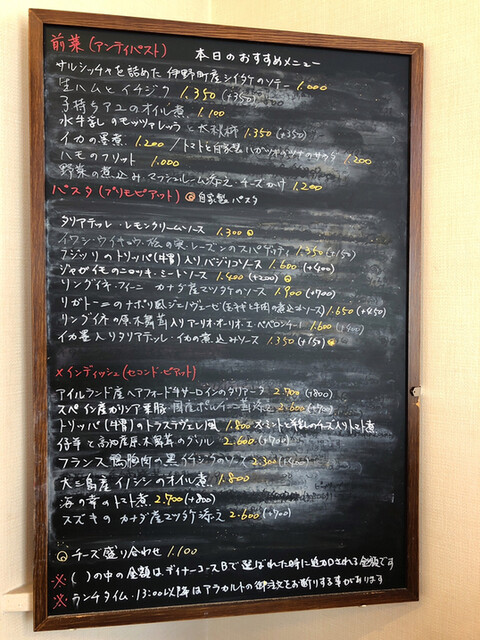 前菜(アンティパスト) 本日のおすすめメニュー
サルシッチャを詰めた 伊野町産シイタケのソテー 1.000
生ハムとイチジク 1.350 (+350)
子持ちアユのオイル煮 1.100
水牛乳のモッツァレッラと太秋柿 1.350 (+350)
イカの墨煮 1.200 / トマトと自家製 のサラダ 1.200
ハモのフリット 1.000
野菜の煮込み マッシュルーム添え・チーズかけ 1.200
パスタ(プリモピアット) 自家製パスタ
タリアテッレ・レモンクリームソース 1.300
イワシ・ウイキョウ・松の実・レーズンのスパゲッティ 1.350 (+150)
フジッリのトリッパ(牛胃)入りバジリコソース 1.600 (+400)
ジャガイモのニョッキ・ミートソース 1.400 (+200)
リングイネ・フィーニ カナダ産マツタケのソース 1.900 (+700)
リガトーニのナポリ風ジェノヴェーゼ(玉ネギと牛肉の煮込みソース) 1.650 (+450)
リングイネの原木舞茸入りアーリオ・オーリオ・エ・ペペロンチーノ 1.600 (+400)
イカ墨入りタリアテッレ・イカの煮込みソース 1.350 (+150)
メインディッシュ(セコンド・ピアット)
アイルランド産ヘアフォード牛サーロインのタリアータ 2.700 (+800)
スペイン産ガリシア栗豚 国産ポルチーニ茸添え 2.600 (+700)
トリッパ(牛胃)のトラステヴェレ風 1.800 ※ミントと羊乳のチーズ入りトマト煮
仔羊と高知産原木舞茸のグリル 2.600 (+700)
フランス鴨胸肉の黒イチジクのソース 2.300 (+400)
大三島産イノシシのオイル煮 1.800
海の幸のトマト煮 2.700 (+800)
スズキのカナダ産マツタケ添え 2.600 (+700)
チーズ盛り合わせ 1.100
※ ( )の中の金額は、ディナーコースBで選ばれた時に追加される金額です
※ ランチタイム・13:00以降はアラカルトの御注文をお断りする事があります